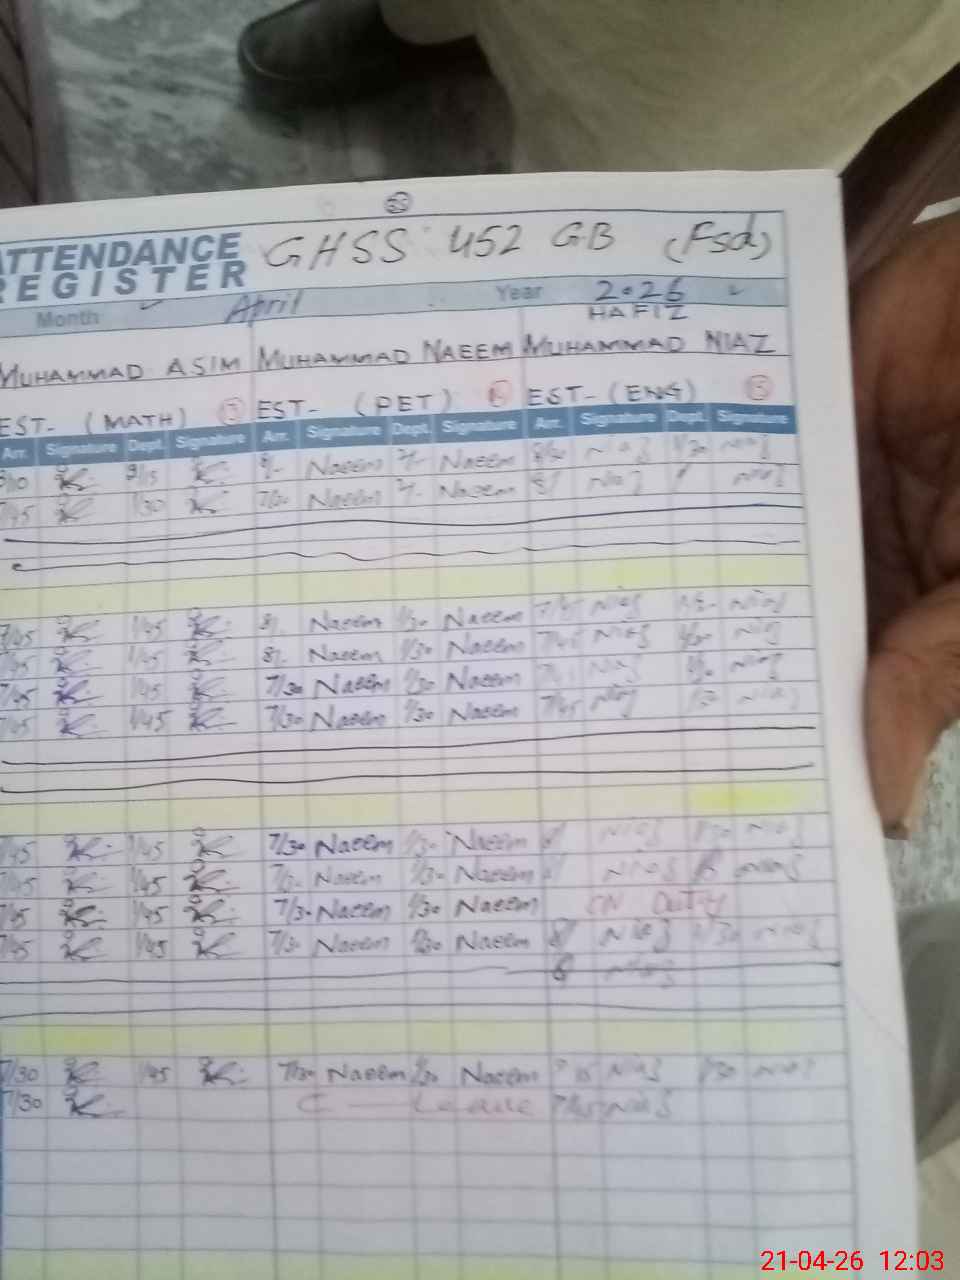 53
ATTENDANCE REGISTER GHSS 452 GB (Fsd)
Month April Year 2026
HAFIZ
MUHAMMAD ASIM MUHAMMAD NAEEM MUHAMMAD NIAZ
EST- (MATH) EST- (PET) EST- (ENG) 15
Arr. Signature Dept. Signature Arr. Signature Dept. Signature Arr. Signature Dept. Signature
9/15 8/- Naeem 2/- Naeem 8/30 Niaz 1/30 Niaz
7/45 1/30 7/30 Naeem 2/- Naeem 8/ Niaz Niaz
7/45 1/45 8/. Naeem 1/30 Naeem 7/45 Niaz Niaz
7/45 1/45 8/. Naeem 1/30 Naeem 7/45 Niaz 1/30 Niaz
7/45 1/45 7/30 Naeem 1/30 Naeem Niaz 1/30 Niaz
7/45 1/45 7/30 Naeem 1/30 Naeem 7/45 Niaz 1/30 Niaz
7/45 1/45 7/30 Naeem 1/30 Naeem 8/ Niaz 1/30 Niaz
7/45 1/45 7/30 Naeem 1/30 Naeem Niaz Niaz
7/45 1/45 7/30 Naeem 1/30 Naeem ON Duty
7/45 1/45 7/30 Naeem 1/30 Naeem 8/ Niaz 1/30 Niaz
8 Niaz
7/30 1/45 7/30 Naeem 1/30 Naeem Niaz 1/30 Niaz
7/30 C — Leave 7/45 Niaz
21-04-26 12:03